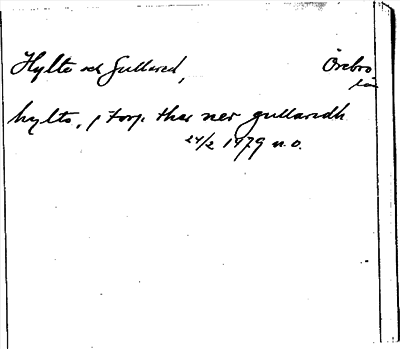 Hylte och Gullared, Örebro
län
hylto, 1 torp thar ner gullaredh
24/2 1479 n.o.